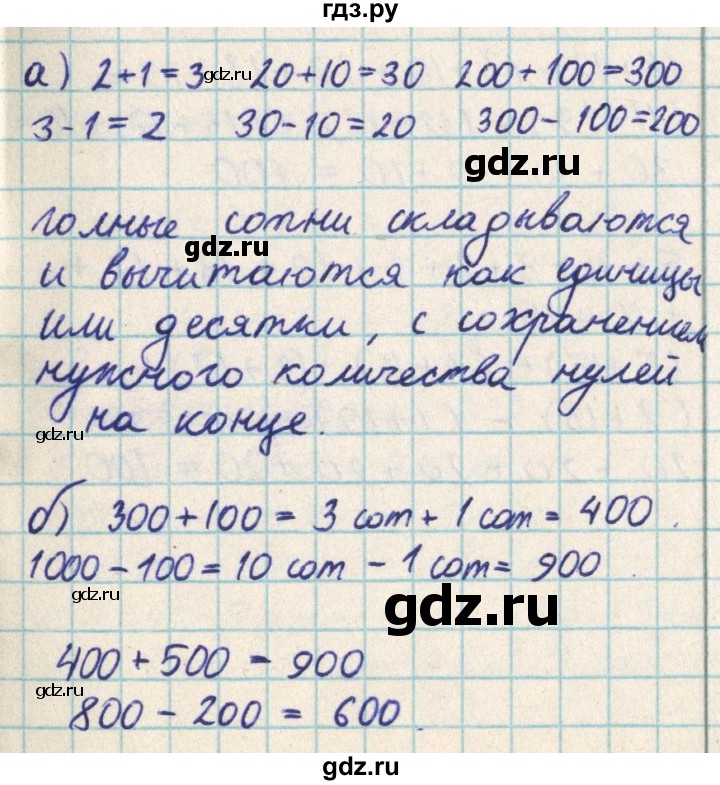 гдз.ру
а) 2+1=3 20+10=30 200+100=300
gdz.ru
3-1=2 30-10=20 300-100=200
gdz.ru
полные сотни складываются
gdz.ru
и вычитаются как единицы
или десятки, с сохранением
нужного количества нулей
на конце.
gdz.ru
б) 300+100=3 сот+1 сот=400.
1000-100=10 сот-1 сот=900
gdz.ru
gdz.ru
400+500=900
gdz.ru
800-200=600.
gdz.ru